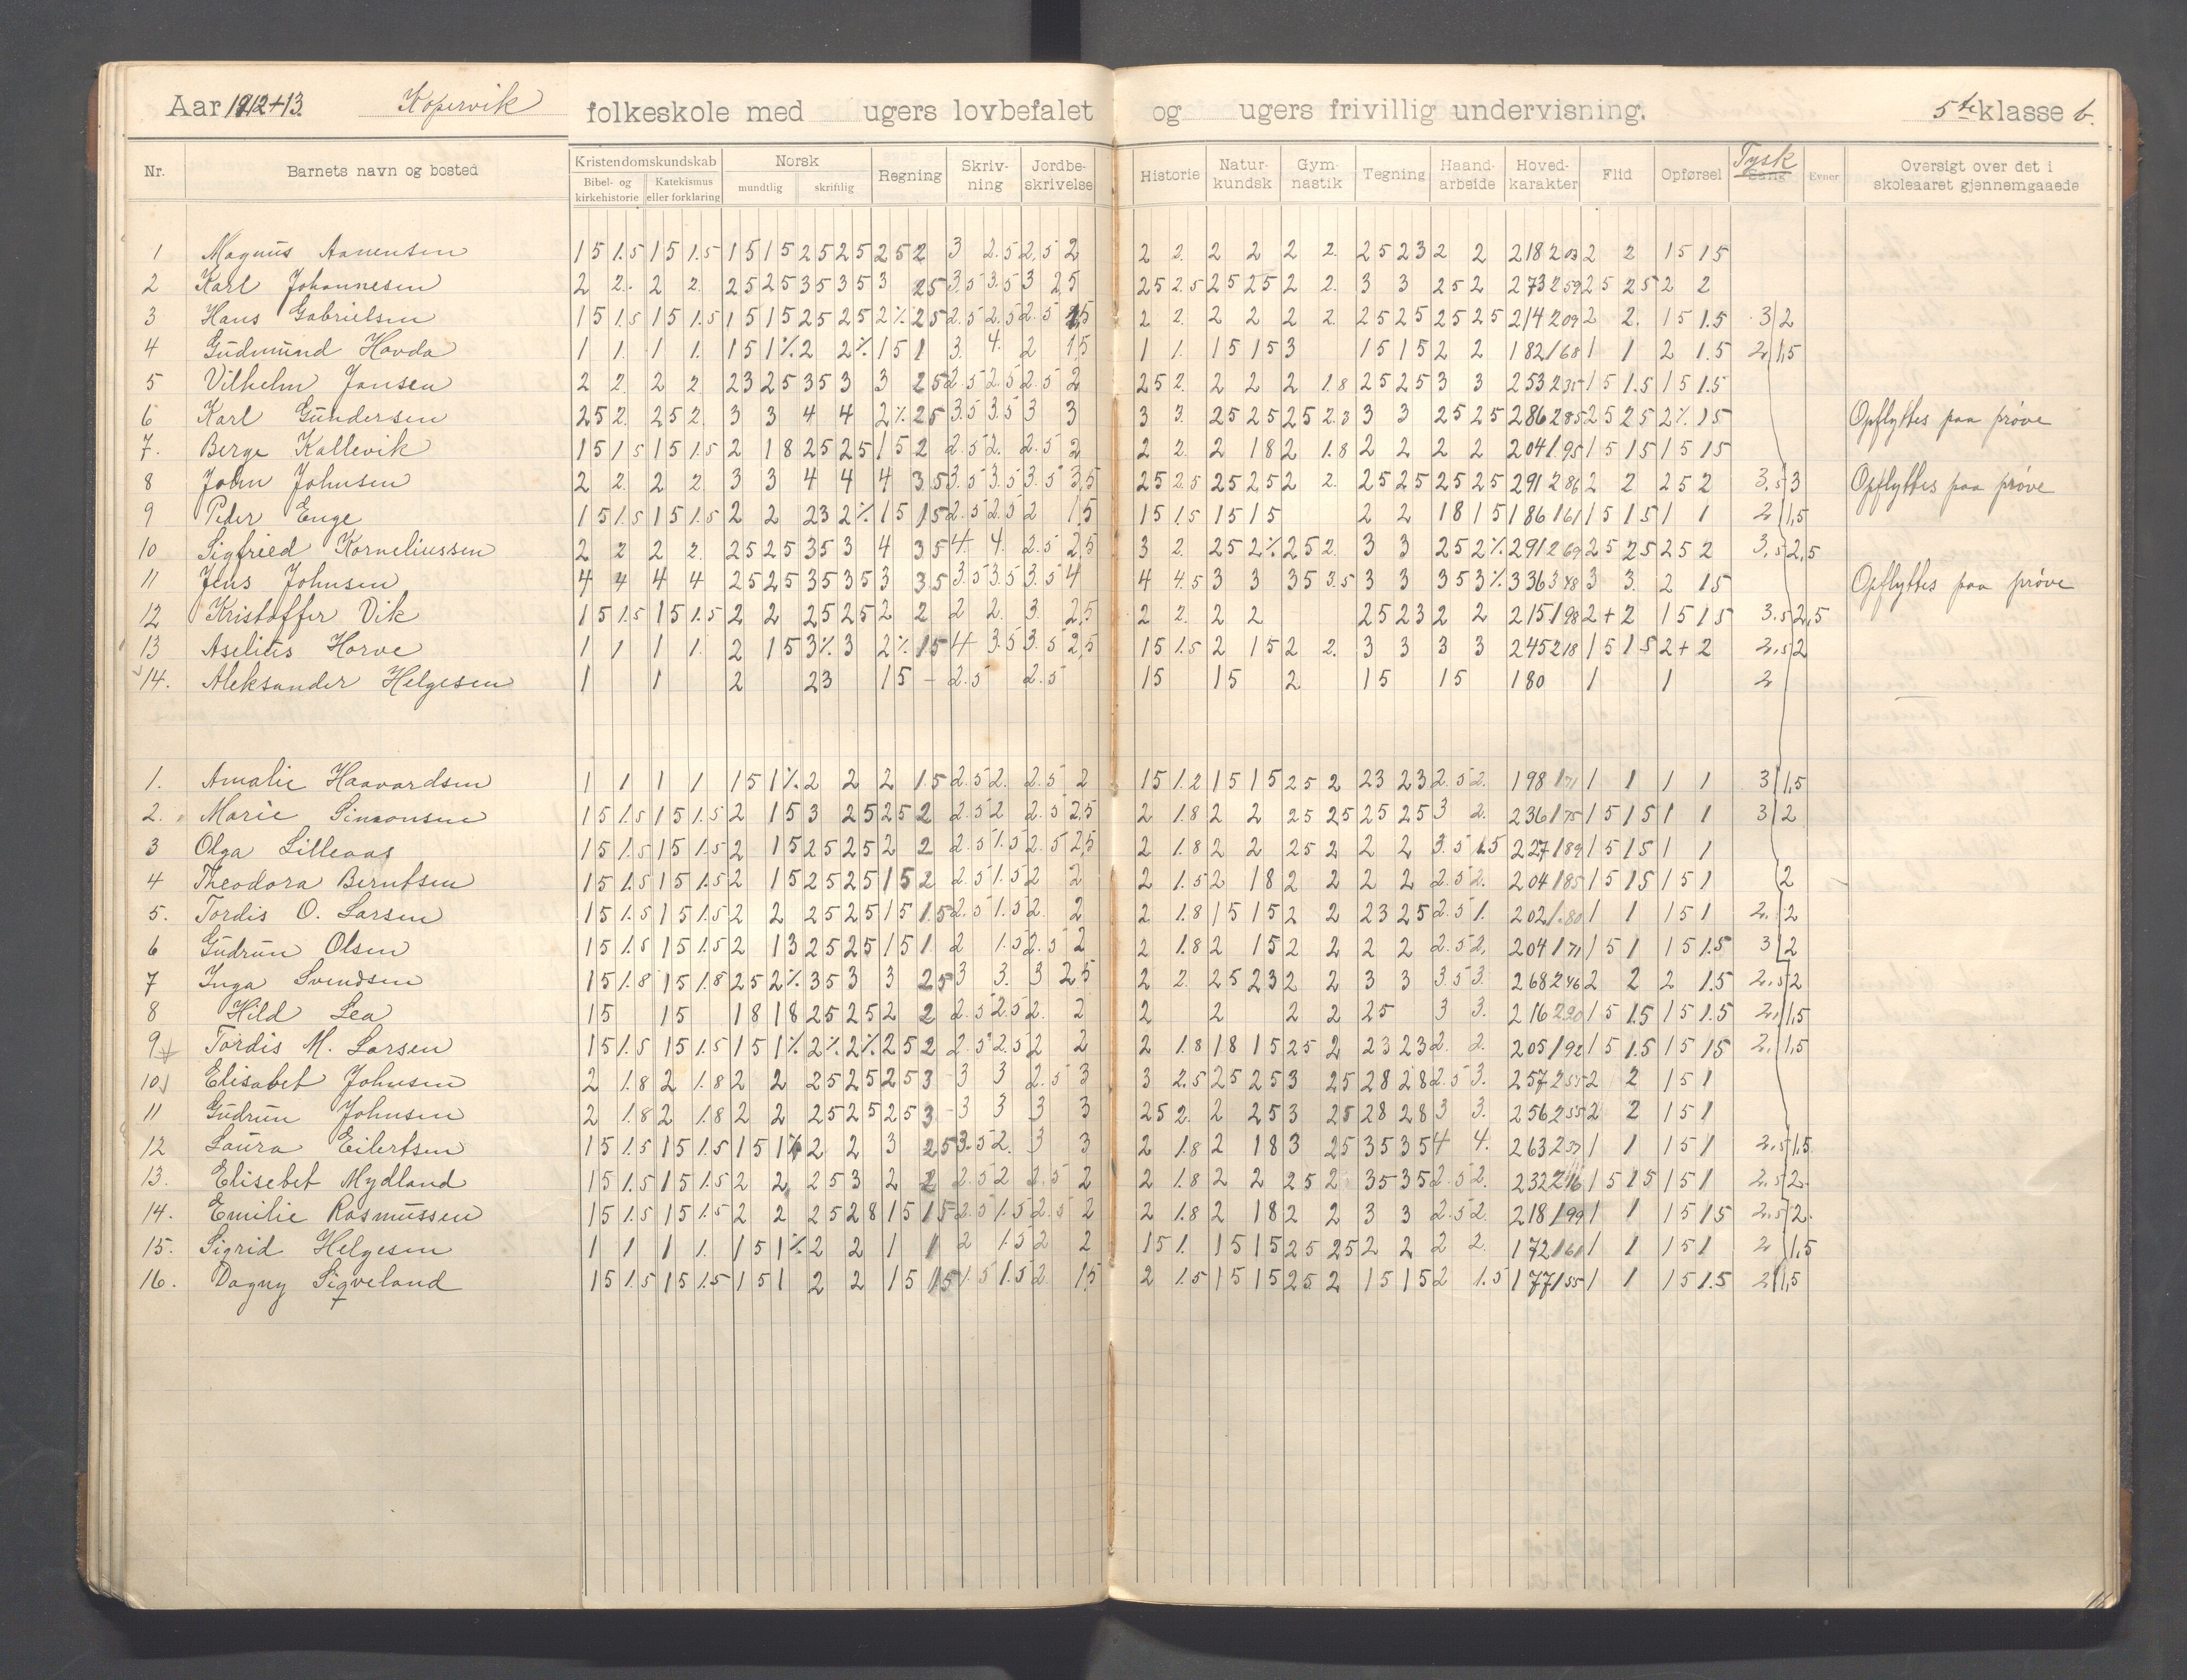 Aar 1912+13. Kopervik folkeskole med ugers lovbefalet og ugers frivillig undervisning. 5te klasse b.
Nr. Barnets navn og bosted Kristendomskundskab Norsk Regning Skriv-ning Jordbe-skrivelse Historie Natur-kundsk Gym-nastik Tegning Haand-arbeide Hoved-karakter Flid Opførsel Tysk Sang Evner Oversigt over det i skoleaaret gjennemgaaede
Bibel- og kirkehistorie Katekismus eller forklaring mundtlig skriftlig
1 Magnus Aanensen 15 1.5 15 1.5 15 15 25 25 25 2 3 2.5 2,5 2 2 2. 2 2 2 2. 25 23 2 2 218 203 2 2 15 15
2 Karl Johannesen 2 2. 2 2. 25 25 35 35 3 25 3.5 3.5 3 25 25 2.5 25 25 2 2. 3 3 25 2 273 259 25 25 2 2
3 Hans Gabrielsen 15 1.5 15 1.5 15 15 25 25 2% 25 2.5 2.5 2.5 1,5 2 2. 2 2 2 2. 25 25 25 25 214 209 2 2. 15 1.5 3 2
4 Gudmund Hovda 1 1. 1 1. 15 1% 2 2% 15 1 3. 4. 2 1,5 1 1. 15 15 3 15 15 2 2 182 168 1 1 2 1.5 2 1,5
5 Vilhelm Jansen 2 2. 2 2. 23 25 35 3 3 25 2.5 2.5 2.5 2 25 2. 2 2 2 1.8 25 25 3 3 253 235 15 1.5 15 1.5
6 Karl Gundersen 25 2. 25 2. 3 3 4 4 2% 25 3.5 3.5 3 3 3 3. 25 25 25 2.3 3 3 25 25 286 285 25 25 2% 15 Opflyttes paa prøve
7. Berge Kallevik 15 1.5 15 1.5 2 18 25 25 15 2 2.5 2. 2.5 2 2 2. 2 18 2 1.8 2 2 2 2 204 1.95 15 15 15 15
8 John Johnsen 2 2. 2 2. 3 3 4 4 4 3.5 3.5 3.5 3.5 3,5 25 2.5 25 25 2 2. 25 25 25 25 291 286 2 2 25 2 3,5 3 Opflyttes paa prøve
9 Peder Enge 15 1.5 15 1.5 2 2 23 2% 15 15 2.5 2.5 2 1,5 15 1.5 15 15 2 2 18 15 186 161 15 15 1 1 2 1,5
10 Sigfried Korneliussen 2 2 2 2. 25 25 35 3 4 35 4. 4. 2.5 2,5 3 2. 25 2% 25 2. 3 3 25 2% 291 269 25 25 25 2 3,5 2,5
11 Jens Johnsen 4 4 4 4 25 25 35 35 3 35 3.5 3.5 3.5 4 4 4.5 3 3 35 3.5 3 3 35 3% 336 348 3 3. 2 15 Opflyttes paa prøve
12 Kristoffer Vik 15 1.5 15 1.5 2 2 25 25 2 2 2 2. 3. 2,5 2 2. 2 2 25 23 2 2 215 198 2+ 2 15 15 3.5 2,5
13 Aselius Horve 1 1 1 1. 2 15 3% 3 2% 15 4 3.5 3.5 2,5 15 1.5 2 15 2 2. 3 3 3 3 245 218 15 15 2+ 2 2,5 2
14. Aleksander Helgesen 1 1 2 23 15 - 2.5 2.5 15 15 2 15 15 180 1 1 2
1. Amalie Haavardsen 1 1 1 1 15 1% 2 2 2 1.5 2.5 2. 2.5 2 15 1.2 15 15 25 2 23 23 2.5 2. 198 171 1 1 1 1 3 1,5
2. Marie Simonsen 15 1.5 15 1.5 2 15 3 25 25 2 2.5 2 2.5 2,5 2 1.8 2 2 25 25 25 25 3 2. 236 175 15 15 1 1 3 2
3 Olga Lilleaas 15 1.5 15 1.5 2 15 25 25 2 2 2.5 1.5 2.5 2,5 2 1.8 2 2 25 2 2 2 3.5 1.5 227 189 15 15 1 1
4 Theodora Berntsen 15 1.5 15 1.5 2 15 25 25 15 2 2.5 1.5 2 2 2 1.5 2 18 2 2 2 2 2.5 2. 204 185 15 15 15 1 2
5. Tordis O. Larsen 15 1.5 15 1.5 2 2 25 25 15 1.5 2.5 1.5 2. 2 2 1.8 15 15 2 2 23 25 2.5 1. 202 1.80 1 1 15 1 2. 2
6 Gudrun Olsen 15 1.5 15 1.5 2 13 25 25 15 1. 2 1.5 2.5 2 2 1.8 2 15 2 2 2 2 2.5 2. 204 171 15 1 15 1.5 3 2
7 Inga Svendsen 15 1.8 15 1.8 25 2% 35 3 3 25 3 3. 3 25 2 2. 25 23 2 2 3 3 3.5 3. 268 246 2 2 2 1.5 2,5 2
8 Hild Lea 15 15 18 18 25 25 2 2 2.5 2.5 2. 2 2 2 2 2 25 3 3. 216 220 15 1.5 15 1.5 2, 1,5
9 Tordis M. Larsen 15 1.5 15 1.5 15 1% 2% 2% 25 2 2.5 2.5 2 2 2 1.8 18 15 25 2 23 23 2. 2. 205 192 15 1.5 15 15 2, 1,5
10 Elisabet Johnsen 2 1.8 2 1.8 2 2 25 25 25 3 3 3 2.5 3 3 2.5 25 25 3 25 28 28 2.5 3. 257 255 2 2 15 1
11 Gudrun Johnsen 2 1.8 2 1.8 2 2 25 25 25 3 3 3 3 3 25 2. 2 25 3 25 28 28 3 3. 256 255 2 2 15 1
12 Laura Eilertsen 15 1.5 15 1.5 15 1% 2 2 3 25 3.5 2. 3 3 2 1.8 2 18 3 25 35 35 4 4. 263 237 1 1 15 1 2,5 1,5
13. Elisebet Mydland 15 1.5 15 1.5 2 2 25 3 2 2 2.5 2 2.5 2 2 1.8 2 2 25 2 35 35 2.5 2. 232 216 15 15 15 1 2,5 2.
14. Emilie Rasmussen 15 1.5 15 1.5 2 2 25 28 15 15 2.5 1.5 2.5 2 2 1.8 2 18 2 2 3 3 2.5 2. 218 199 1 1 15 15 2,5 2.
15. Sigrid Helgesen 1 1 1 1. 15 1% 2 2 1 1 2 1.5 2 2 15 1. 15 15 25 25 2 2 2 2. 172 161 1 1 15 1 2 1,5
16. Dagny Sigveland 15 1.5 15 1.5 15 1 2 2 15 15 1.5 1.5 2 1,5 2 1.5 15 15 25 2 15 15 2 1.5 177 155 1 1 15 1.5 2 1,5